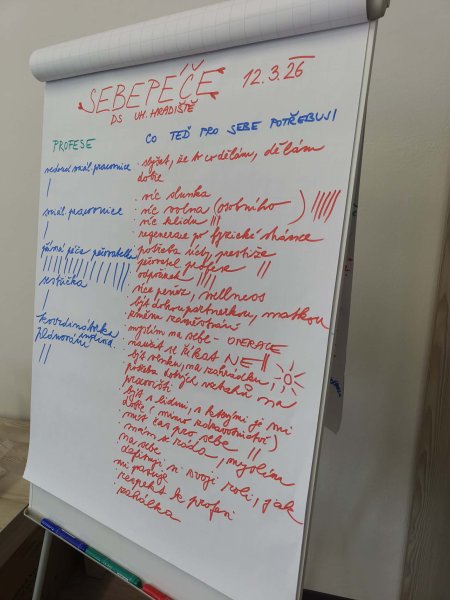 SEBEPÉČE 12.3.26
DS UH. HRADIŠTĚ
PROFESE
vedoucí soc. pracovnice
|
soc. pracovnice
|
přímá péče pečovatelka
||||||||||||
sestřička
|
koordinátorka
plánování
||
CO TEĎ PRO SEBE POTŘEBUJI
· slyšet, že to co dělám, dělám
dobře
· víc slunka
· víc volna (osobního) |||||
· víc klidu |||
· regenerace po fyzické stránce
· potřeba úcty, prestiže
pečovatel. profese ||
· odpočinek ||||
· více peněz, wellness
· být dobrou partnerkou, matkou
· změna zaměstnání
· myslím na sebe - OPERACE
· naučit se říkat NE ||
· být venku, na zahrádku,
· potřeba dobrých vztahů na
pracovišti
· být s lidmi, s kterými je mi
dobře (mimo zdravotnictví)
· mít čas pro sebe ||
· mám se ráda, myslím
na sebe
· definuji si svoji roli, jak
mi pasuje
· respekt k profesi
· zahálka